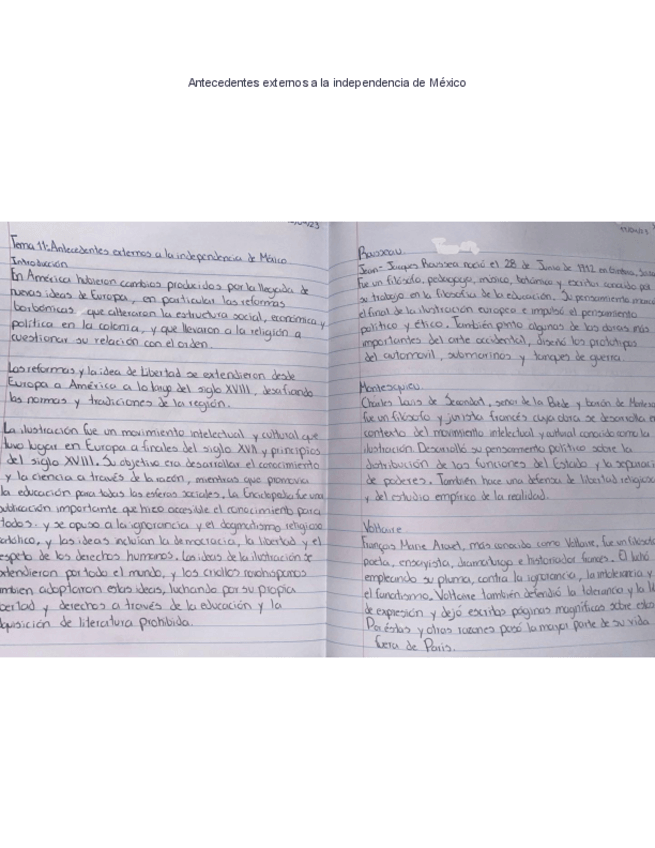 Antecedentes externos a la independencia de México
Tema 11: Antecedentes externos a la independencia de México
Introducción
En América hubieron cambios producidos por la llegada de
nuevas ideas de Europa, en particular las reformas
borbómicas, que alteraron la estructura social, económica y
política en la colonia, y que llevaron a la religión a
cuestionar su relación con el orden.
Las reformas y la idea de libertad se extendieron desde
Europa a América a lo largo del siglo XVIII, desafiando
las normas y tradiciones de la región.
La ilustración fue un movimiento intelectual y cultural que
tuvo lugar en Europa a finales del siglo XVII y principios
del siglo XVIII. Su objetivo era desarrollar el conocimiento
y la ciencia a través de la razón, mientras que promovía
la educación para todas las esferas sociales. La Enciclopedia fue una
publicación importante que hizo accesible el conocimiento para
todos. y se opuso a la ignorancia y el dogmatismo religioso
católico, y las ideas incluían la democracia, la libertad y el
espeto de los derechos humanos. Las ideas de la ilustración se
extendieron por todo el mundo, y los criollos novohispanos
mbien adoptaron estas ideas, luchando por su propia
bertad y derechos a través de la educación y la
quisición de literatura prohibida.
11/04/23
Jean-Jacques nació el 28 de Junio de 1712 en
Fue un filósofo, pedagogo, músico, botánico y escritor conocido por
su trabajo en la filosofía de la educación. Su pensamiento
el final de la ilustración europea e impulsó el pensamiento
político y ético. También pinto algunas de las obras más
importantes del arte occidental, diseñó los prototipos
del automovil, submarinos y tanques de guerra.
Montesquieu
Charles Louis de Secondat, señor de la Brede y barón de
fue un filósofo y jurista francés cuya obra se desarrolla en
contexto del movimiento intelectual y cultural conocido como la
ilustración. Desarrolló su pensamiento político sobre la
distribución de las funciones del Estado y la separaci
de poderes. También hace una defensa de libertad religiosa
y del estudio empírico de la realidad.
Voltaire
François Marie Arouet, más conocido como Voltaire, fue un filósofo
poeta, ensayista, dramaturgo e historiador frances. El luchó
empleando su pluma, contra la ignorancia, la intolerancia y
el fanatismo. Voltaire también defendió la tolerancia y la li
de expresión y dejó escritas páginas magníficas sobre esto
Por éstas y otras razones pasó la mayor parte de su vida
fuera de París.